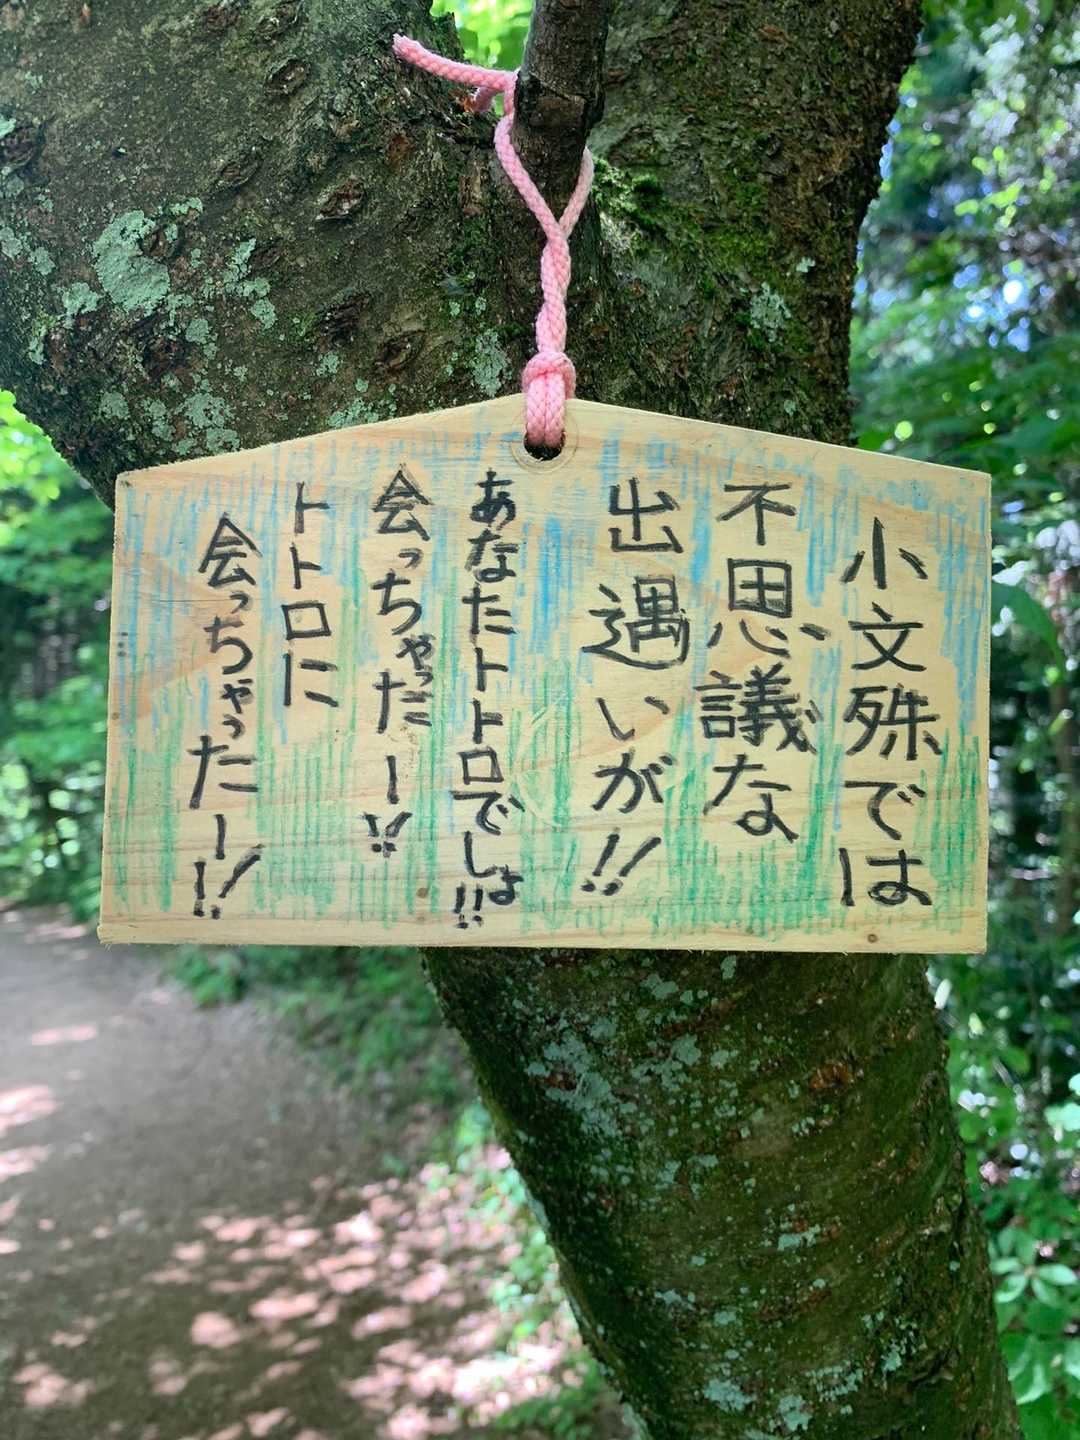 小文殊では
不思議な
出遇いが!!
あなたトトロでしょ!!
会っちゃったー!!
トトロに
会っちゃったー!!